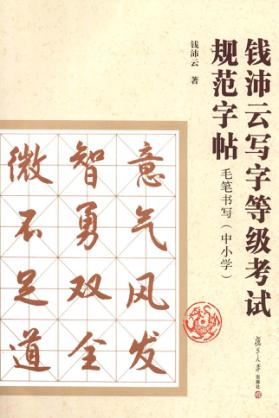 钱沛云写字等级考试
规范字帖
毛笔书写（中小学）
钱沛云 著
意气风发
智勇双全
微不足道